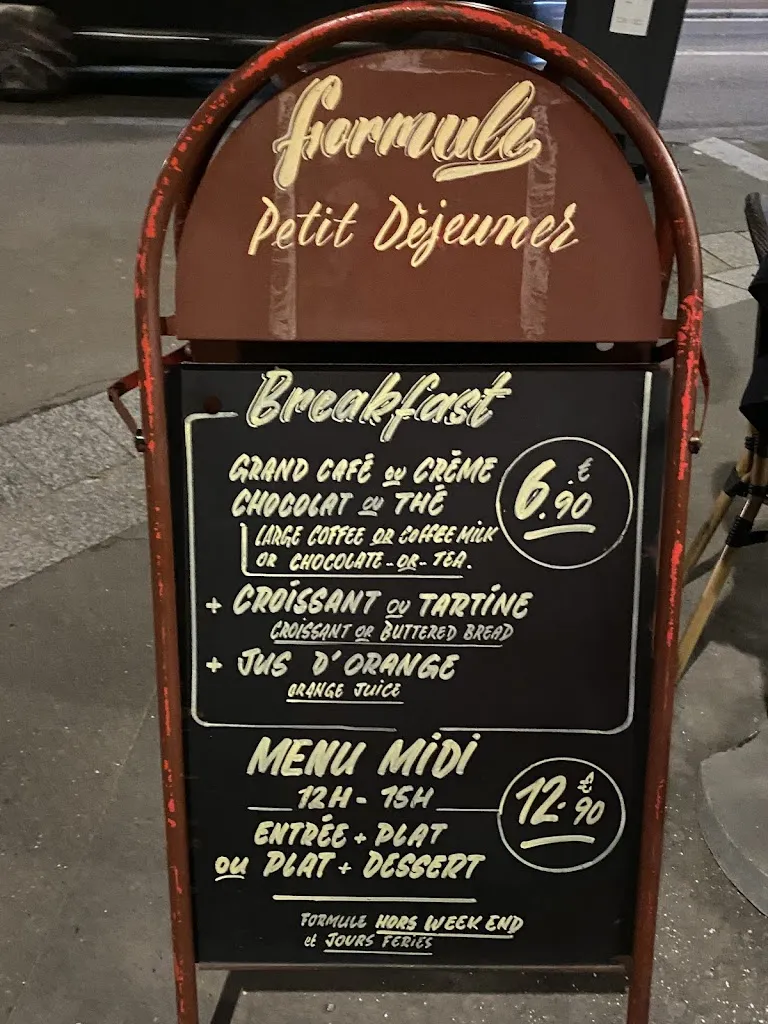 Formule
Petit Déjeuner
Breakfast
GRAND CAFÉ ou CRÈME
CHOCOLAT ou THÉ
6.€90
LARGE COFFEE OR COFFEE MILK
OR CHOCOLATE - OR - TEA.
+ CROISSANT ou TARTINE
CROISSANT OR BUTTERED BREAD
+ JUS D'ORANGE
ORANGE JUICE
MENU MIDI
12H - 15H
12.€90
ENTRÉE + PLAT
ou PLAT + DESSERT
FORMULE HORS WEEK END
et JOURS FERIES